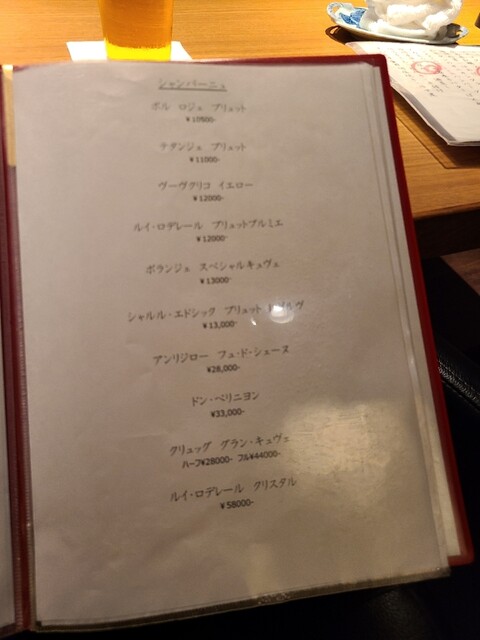 シャンパーニュ
ポル ロジェ ブリュット
¥10500-
テタンジェ ブリュット
¥11000-
ヴーヴクリコ イエロー
¥12000-
ルイ・ロデレール ブリュットプルミエ
¥12000-
ボランジェ スペシャルキュヴェ
¥13000-
シャルル・エドシック ブリュット レゼルヴ
¥13,000-
アンリジロー フュ・ド・シェーヌ
¥28,000-
ドン・ペリニヨン
¥33,000-
クリュッグ グラン・キュヴェ
ハーフ¥28000- フル¥44000-
ルイ・ロデレール クリスタル
¥58000-